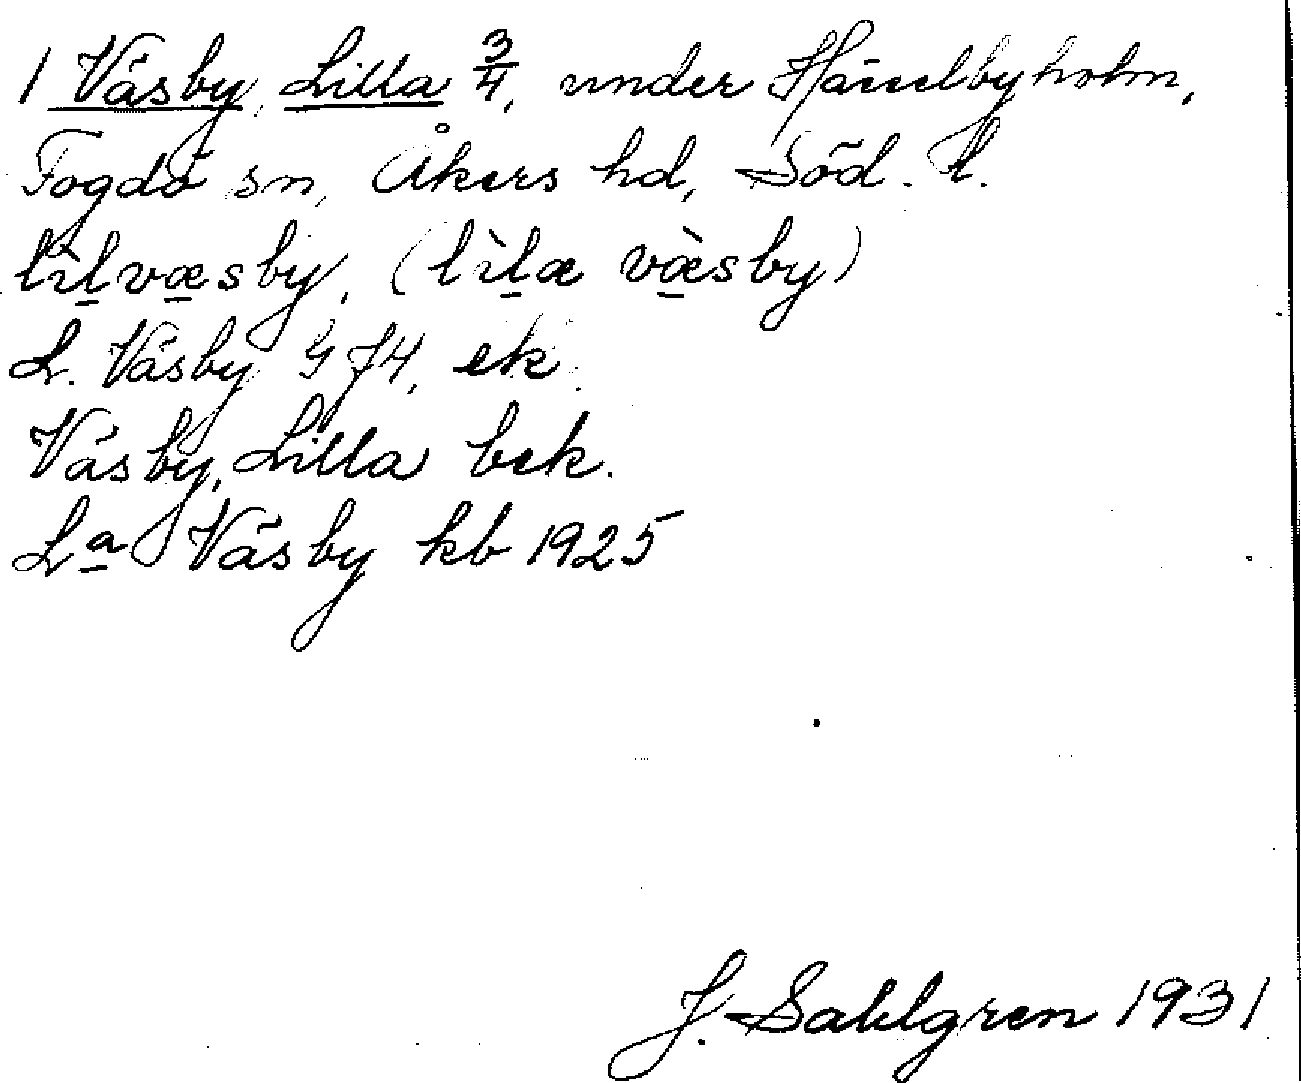 1 Väsby, Lilla 3/4, under Hässelbyholm,
Fogdö sn, Åkers hd, Söd. l.
lìlvæsby, (lìlæ væ̀sby)
L. Väsby GJH, ek.
Väsby, Lilla bek.
La Väsby kb 1925
J. Sahlgren 1931